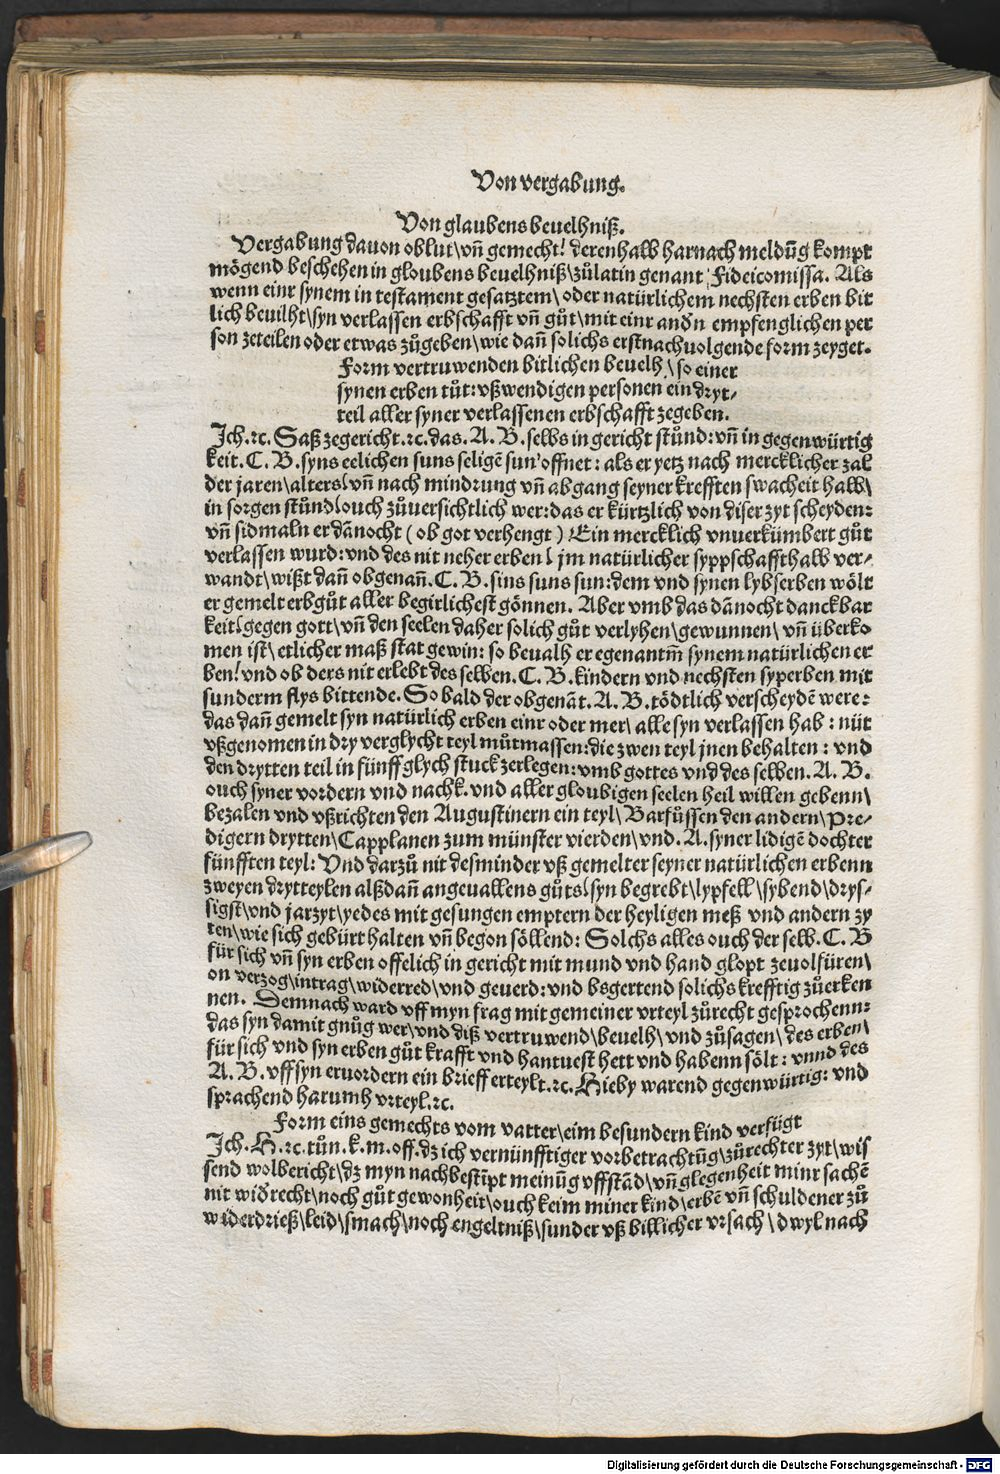 Von vergabung.
Von glaubens beuelhniß.
Vergabung dauon oblut\vn̄ gemecht! derenhalb harnach meldūg kompt
mögend beschehen in gloubens beuelhniß\zůlatin genant Fideicomissa. Als
wenn einr synem in testament gesatztem\ oder natürlichem nechsten erben bit
lich beuilht\syn verlassen erbschafft vn̄ gůt\mit einr andn empfenglichen per
son zeteilen oder etwas zůgeben\wie dan̄ solichs erstnachuolgende form zeyget.
Form vertruwenden bitlichen beuelh\so einer
synen erben tůt:vßwendigen personen ein dryt-
teil aller syner verlassenen erbschafft zegeben.
Ich.rc. Saß zegericht.rc.das. A. B. selbs in gericht stůnd:vn̄ in gegenwürtig
keit. C. B. syns eelichen suns seligē sun offnet: als er yetz nach mercklicher zal
der jaren\alters!vn̄ nach mindrung vn̄ abgang seyner krefften swacheit halb\
in sorgen stůnd!ouch zůuersichtlich wer:das er kürtzlich von diser zyt scheyden:
vn̄ sidmaln er dānocht ( ob got verhengt ) Ein mercklich vnuerkümbert gůt
verlassen wurd:vnd des nit neher erben! jm natürlicher syppschaffthalb ver-
wandt\wißt dan̄ obgenan̄. C. B. sins suns sun:dem vnd synen lybserben wölt
er gemelt erbgůt aller begirlichest gönnen. Aber vmb das dānocht danckbar
keit!gegen gott\vn̄ den seelen daher solich gůt verlyhen\gewunnen\ vn̄ überko
men ist\etlicher maß stat gewin: so beualh er egenantm̄ synem natürlichen er
ben!vnd ob ders nit erlebt des selben. C. B. kindern vnd nechsten syperben mit
sunderm flys bittende. So bald der obgenāt. A. B. tödtlich verscheydē were:
das dan̄ gemelt syn natürlich erben einr oder mer\ alle syn verlassen hab : nüt
vßgenomen in dry verglycht teyl můtmassen:die zwen teyl jnen behalten : vnd
den drytten teil in fünff glych stuck zerlegen:vmb gottes vnd des selben. A. B.
ouch syner vordern vnd nachk.vnd aller gloubigen seelen heil willen gebenn\
bezalen vnd vßrichten den Augustinern ein teyl\Barfüssen den andern\Pre-
digern drytten\Capplanen zum münster vierden\vnd. A. syner lidigē dochter
fünfften teyl: Vnd darzů nit desminder vß gemelter seyner natürlichen erbenn
zweyen drytteylen alßdan̄ angeuallens gůts!syn begrebt\lypfell\sybend\drys-
sigst\vnd jarzyt\yedes mit gesungen emptern der heyligen meß vnd andern zy
ten\wie sich gebürt halten vn̄ began söllend: Solchs alles ouch der selb. C. B
für sich vn̄ syn erben offelich in gericht mit mund vnd hand glopt zeuolfüren\
on verzog\intrag\widerred\vnd geuerd:vnd bsgertend solichs krefftig zůerken
nen. Demnach ward vff myn frag mit gemeiner vrteyl zůrecht gesprochenn:
das syn damit gnůg wer\vnd diß vertruwend\beuelh\vnd zůsagen\des erben\
für sich vnd syn erben gůt krafft vnd hantuest hett vnd habenn sölt: vnnd des
A. B. vff syn eruordern ein brieff erteylt.rc. Hieby warend gegenwürtig: vnd
sprachend harumh vrteyl.rc.
Form eins gemechts vom vatter\eim besundern kind verfügt
Ich. H.rc.tůn.k.m.off.dz ich vernünfftiger vorbetrachtūg\zůrechter zyt\wis
send wolbericht\dz myn nachbestīpt meinūg vffstād\vn̄ glegenheit minr sachē
nit widrecht\noch gůt gewonheit\ouch keim miner kind\erbē vn̄ schuldener zů
widerdrieß\leid\smach\noch engeltniß\sunder vß billicher vrsach\dwyl nach
Digitalisierung gefördert durch die Deutsche Forschungsgemeinschaft - DFG